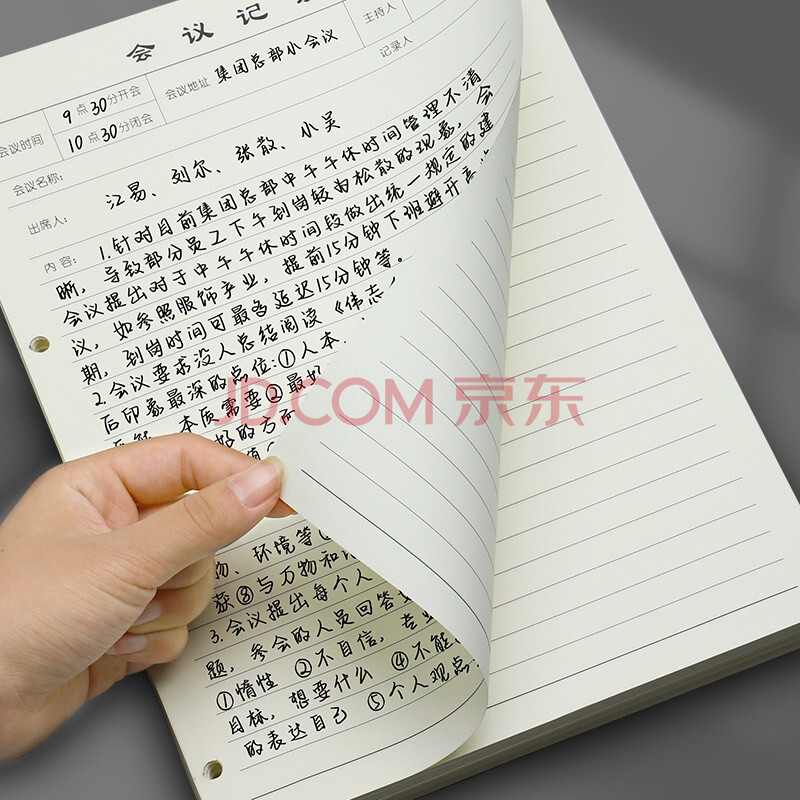 会 议 记
主持人
记录人
会议时间
9点30分开会
10点30分闭会
会议地址 集团总部小会议
会议名称:
出席人: 江易、刘尔、张散、小吴
内 容: 1.针对目前集团总部中午午休时间管理不清
晰，导致部分员工下午到岗较为松散的现象，会
会议提出对于中午午休时间段做出统一规定的建
议，如参照服饰产业，提前15分钟下班避开高
期，到岗时间可最多延迟15分钟等。
2.会议要求没人总结阅读《伟志
后印象最深的点位:①人本
本质需要②最好
好的方面
值
物、环境等
获⑧与万物和
3.会议提出每个人
题，参会的人员回答
①惰性 ②不自信，专业
目标，想要什么 ④不能
的表达自己 ⑤个人观点
JD.COM 京东